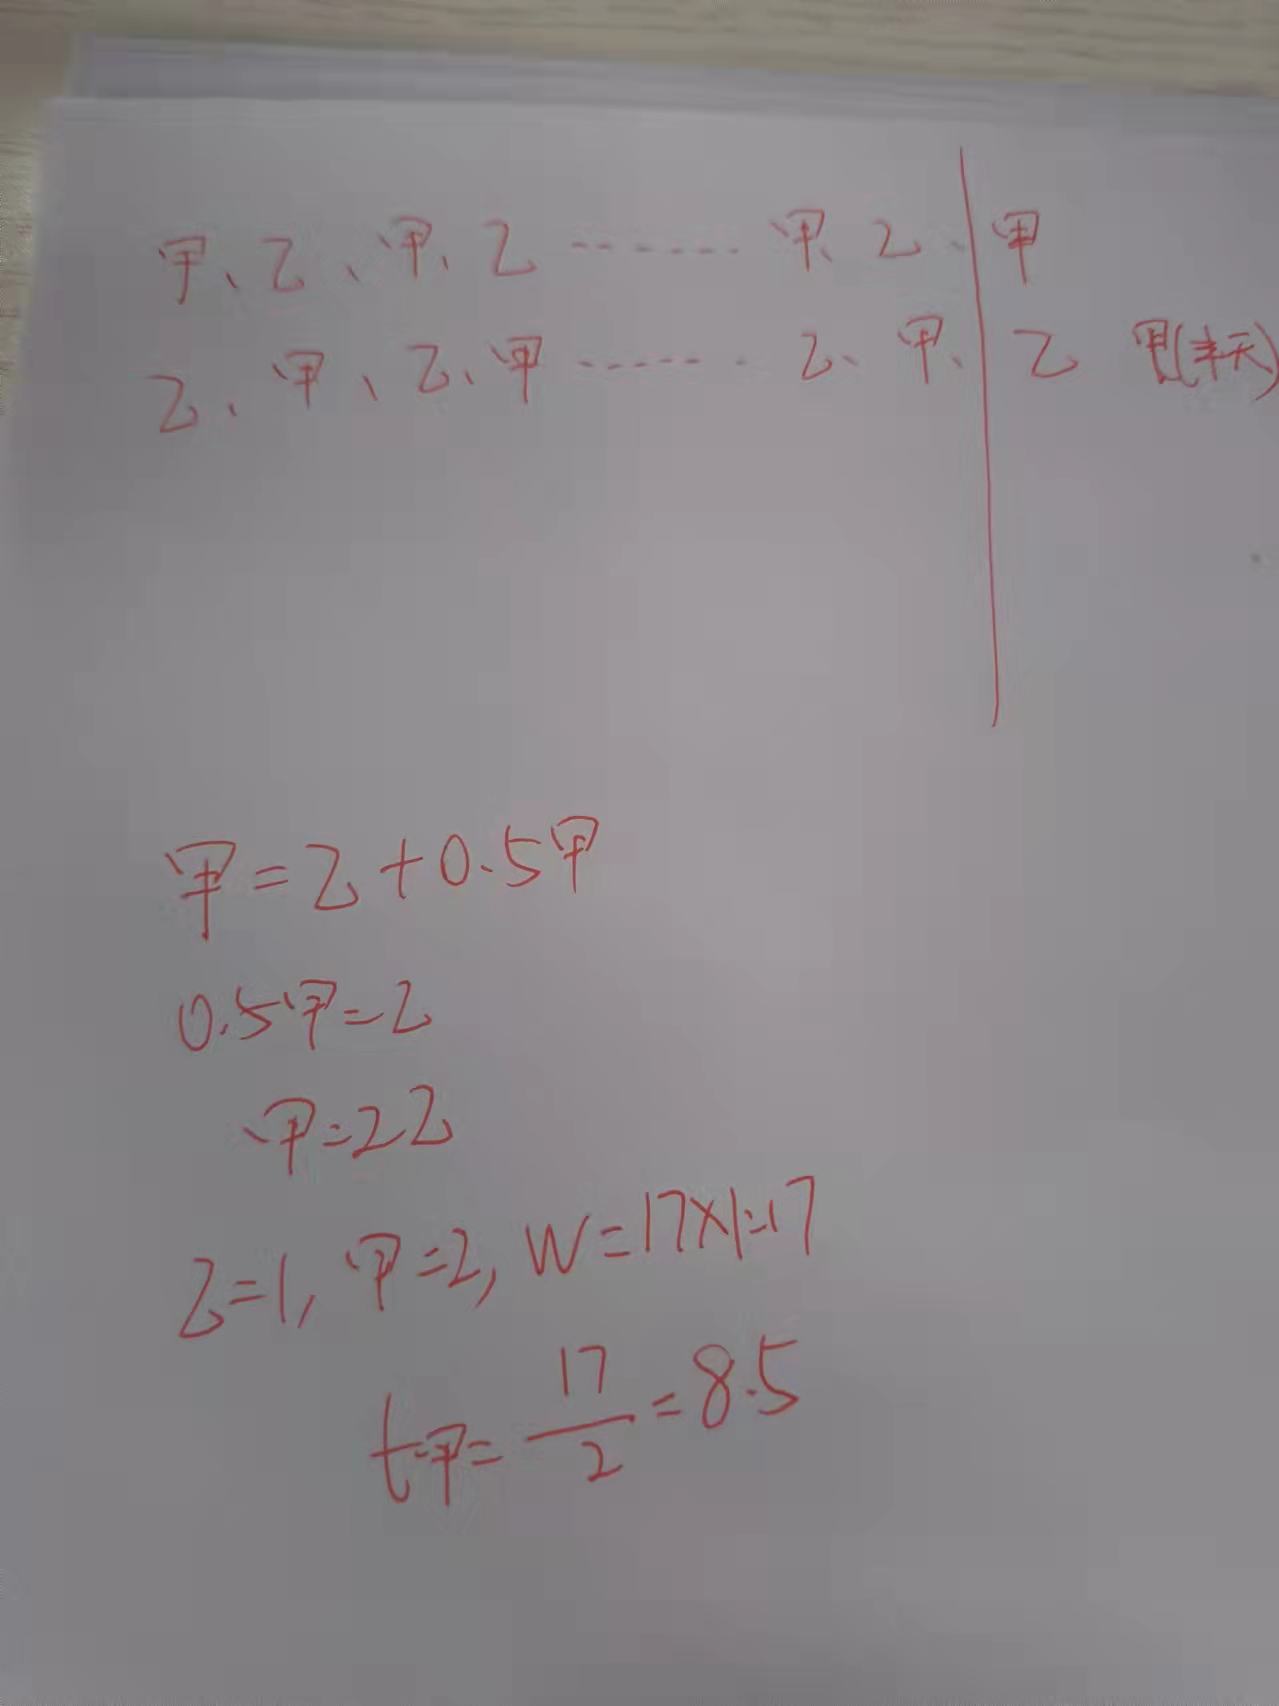 甲、乙、甲、乙……甲、乙、甲
乙、甲、乙、甲……乙、甲、乙 甲(半天)
甲=乙+0.5甲
0.5甲=乙
甲=2乙
乙=1, 甲=2, W=17×1=17
t甲=17/2=8.5